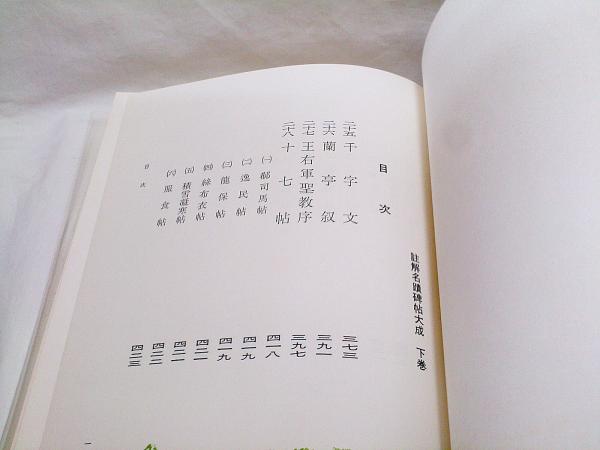 註解名蹟碑帖大成　下巻
目次
二十五 千字文 三七三
二十六 蘭亭叙 三九一
二十七 王右軍聖教序 三九七
二十八 十七帖 四一八
(一) 郗司馬帖 四一九
(二) 逸民帖 四一九
(三) 龍保帖 四二一
(四) 絲布衣帖 四二一
(五) 積雪凝寒帖 四二二
(六) 服食帖 四二三
目次
一